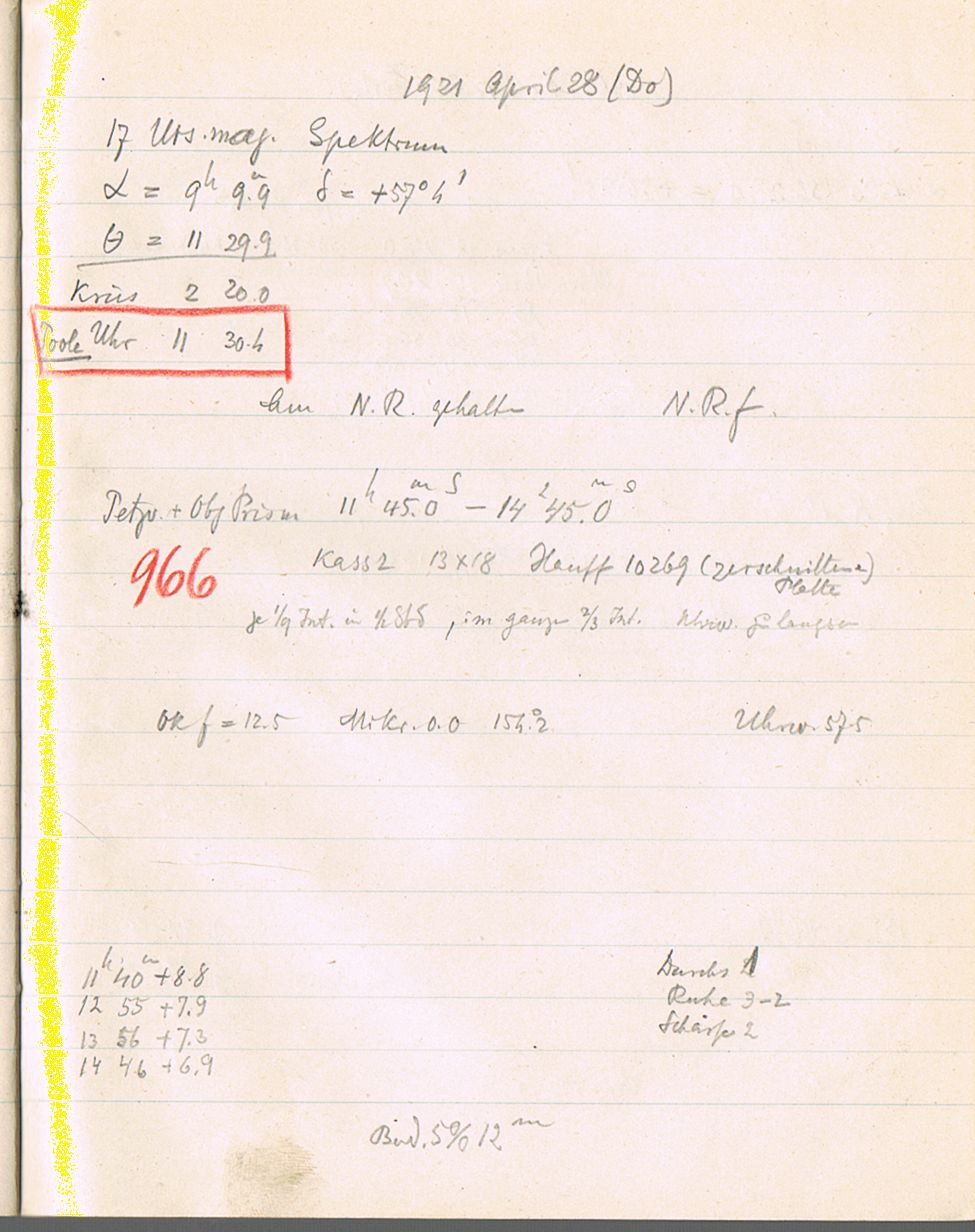 1921 April 28 (Do)
17 Urs. maj. Spektrum
α = 9h 9m.9 δ = +57° 4'
θ = 11 29.9
Krüs 2 20.0
Poole Uhr 11 30.4
am N.R. gehalten N.R.f.
Petzv. + Obj Prism 11h 45m.0s – 14h 45m.0s
966 Kass 2 13×18 Hauff 10269 (zerschnittene
Platte)
je 1/9 Int. in 1/2 Std, im ganzen 2/3 Int. Uhrw. zu langsam
Ok f = 12.5 Mikr. 0.0 154°.2 Uhrw. 57.5
11h 40m +8.8
12 55 +7.9
13 56 +7.3
14 46 +6.9
Durchs 1
Ruhe 3–2
Schärfe 2
5% 12m